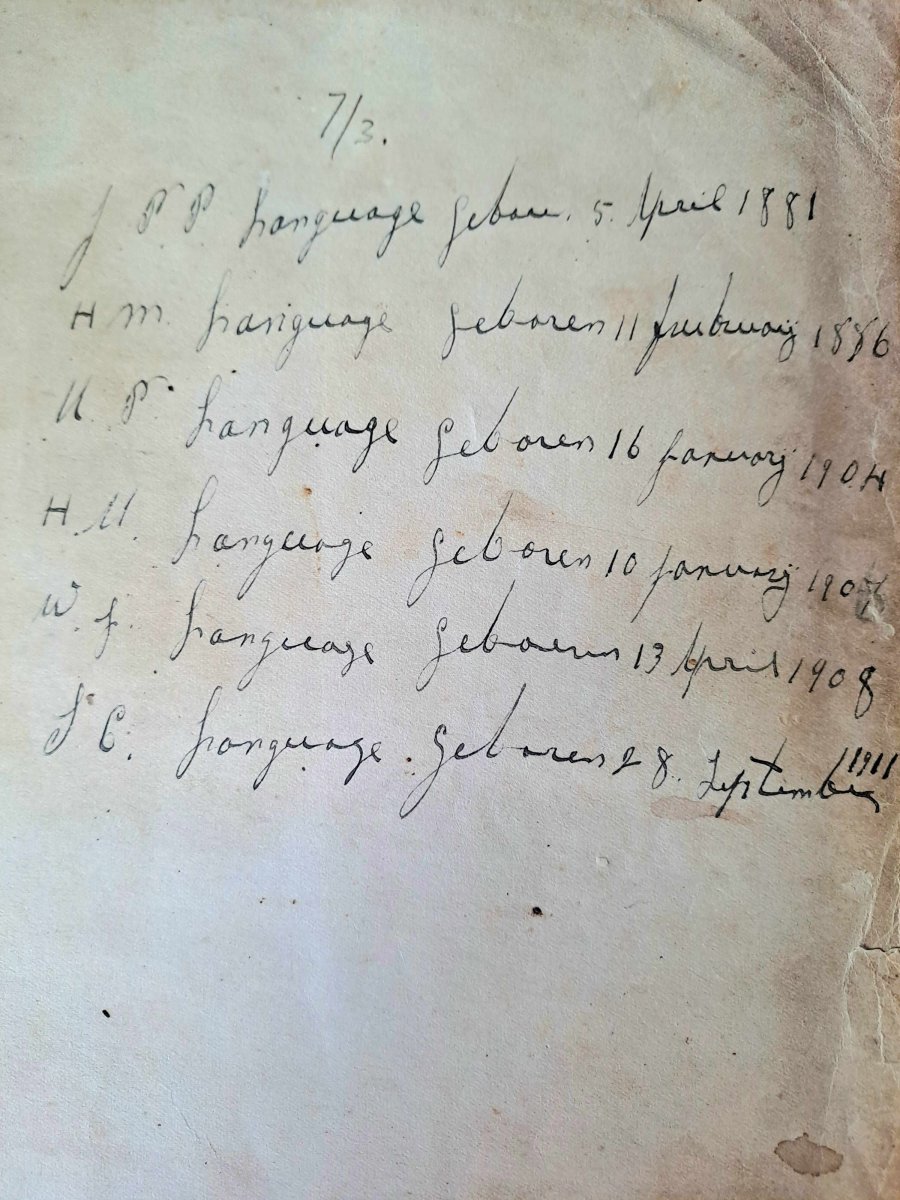 7/3.
J P P Language Geboren. 5. April 1881
H M. Language Geboren 11 Feubruarij 1886
P. Language Geboren 16 Januarij 1904
H M. Language Geboren 10 Januarij
W. J. Language Geboren 13 April 1908
S C. Language Geboren 28. September 1911